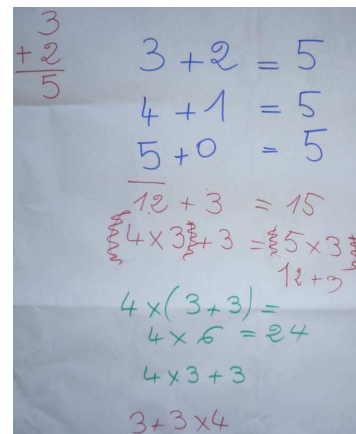 3
+ 2
5
3 + 2 = 5
4 + 1 = 5
5 + 0 = 5
12 + 3 = 15
{4 × 3} + 3 = {5 × 3}
12 + 3
4 × (3 + 3) =
4 × 6 = 24
4 × 3 + 3
3 + 3 × 4